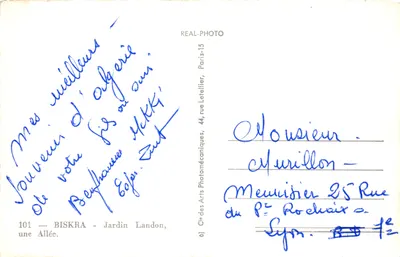 REAL-PHOTO
Mes meilleurs -
Souvenir d'algerie
de votre fils ou ami
Mekki
101 — BISKRA - Jardin Landon,
une Allée.
Cie des Arts Photomécaniques, 44, rue Letellier, Paris-15
Monsieur -
Murillon -
Menuisier 25 Rue
du Pr Rochaix
Lyon. 3e